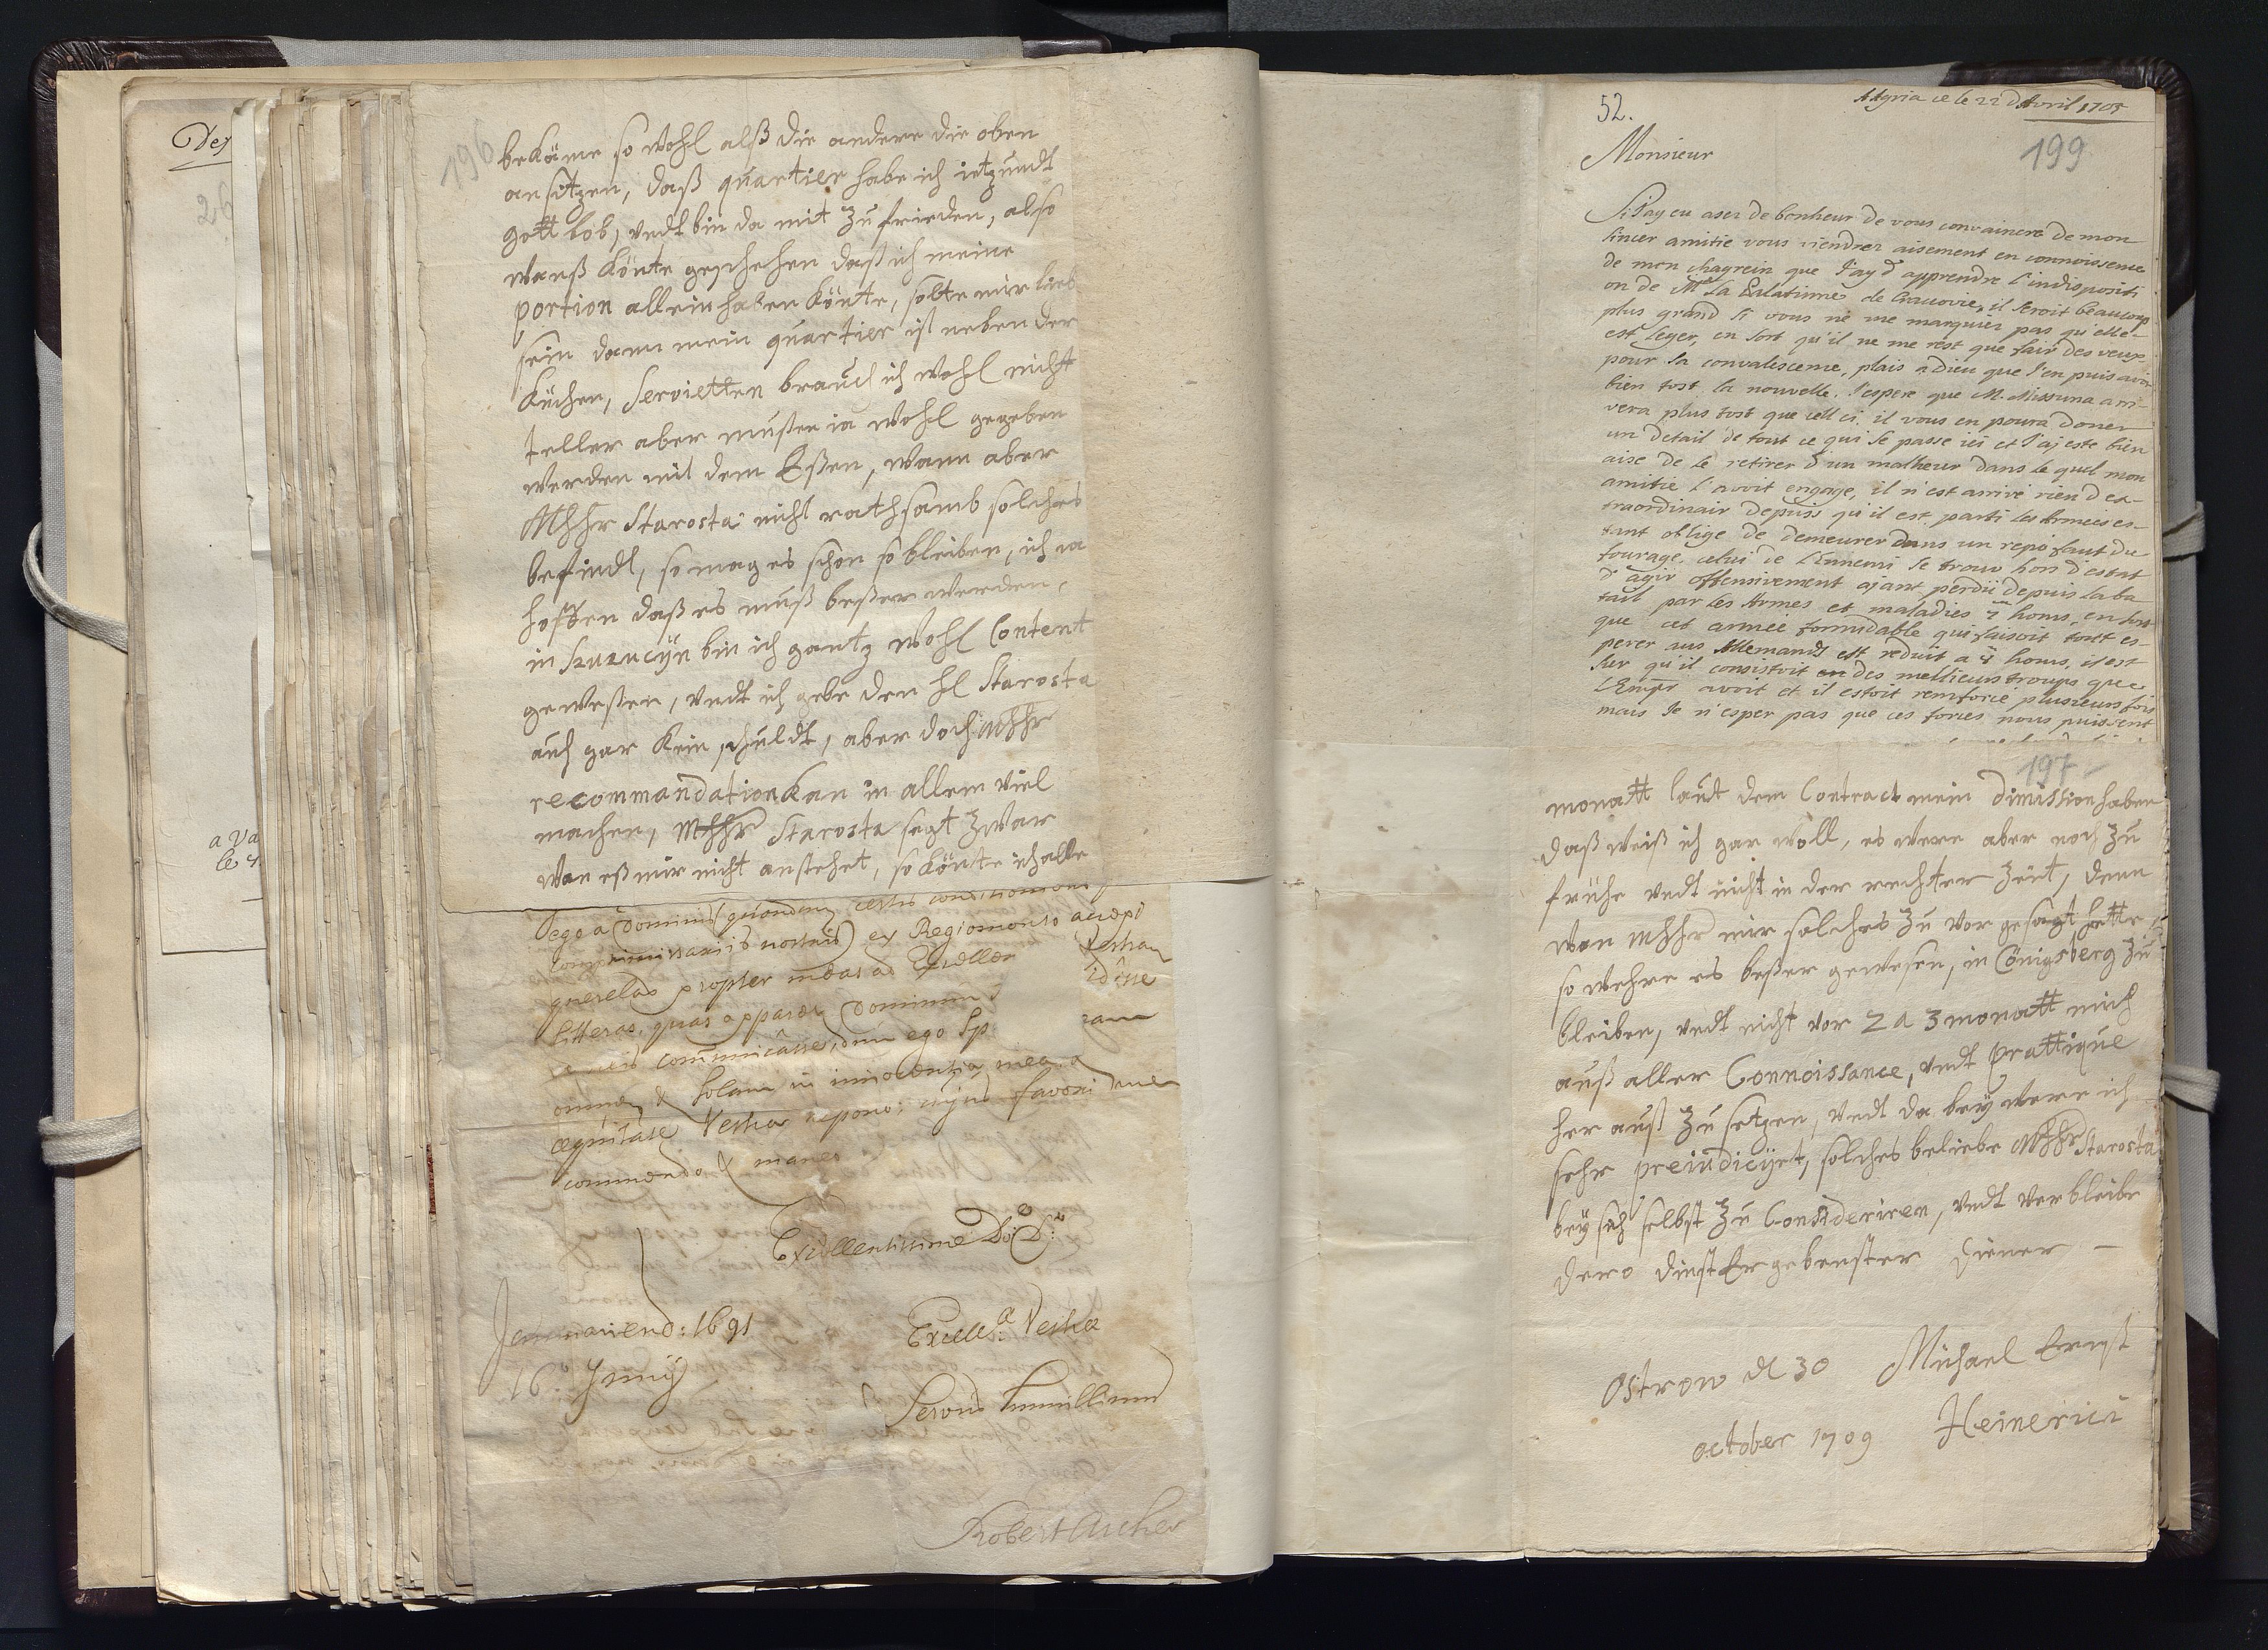 Des
26
a Va
le 4
196
bekäme so wohl alß die andere die oben
an sitzen, daß quartier habe ich ietzundt
gott lob, undt bin da mit zu frieden, also
wenß könte geschehen daß ich meine
portion allein haben könte, solte mir lieb
sein dann mein quartier ist neben der
küchen, Servietten brauch ich wohl nicht
teller aber müßen ia wohl gegeben
werden mit dem Eßen, wann aber
Mhhr Starosta nicht rathsamb solches
befindt, so mag es schon so bleiben, ich
hoffen daß es muß beßer werden,
in bin ich gantz wohl Content
geweßen, undt ich gebe den hl Starosta
auch gar kein schuldt, aber doch Mhhr
recommandation kan in allem viel
machen, Mhhr Starosta sagt zwar
wan eß mir nicht anstehet, so könte ich alle
ego a Dominis (quondam
Commissariis nostris) ex Regiomonto accepi
querelas propter meas ad Excellen Vestram
litteras, quas apparet Dominum
communicasse, dum ego Sp
omnem & solam in innocentia mea, &
æquitate Vestra repono; cujus favori me
commendo & maneo
Excellentissime Do: D:
Excell:æ Vestræ
Servus humillimus
Jannariend: 1691
16.º Junÿ
Robert Archer
52.
A Agria ce le 22 d'Avril 1705
199
Monsieur
Si J'ay eu asez de bonheur de vous convaincre de mon
sincer amitie vous viendrez aisement en connoissence
de mon chagrein que J'ay d'apprendre l'indispositi
on de Me La Palatinne de Cracovie, il seroit beaucoup
plus grand si vous ne me marquiez pas qu'elle
est leger, en sort qu'il ne me rest que fair des veux
pour sa convalescence, plais a Dieu que J'en puis avoir
bien tost la nouvelle. J'espere que M. Missuna arri-
vera plus tost que cell ci. il vous en poura doner
un detail de tout ce qui se passe ici et J'aj este bien
aise de le retirer d'un malheur dans le quel mon
amitie l'avoit engage, il n'est arrivé rien d'ex-
traordinair depuis qu'il est parti les Armées es-
tant oblige de demeurer dans un repo faut du
fourage, celui de l'Ennemi se trouv hors d'estat
d'agir offensivement ajant perdu depuis la ba
tail par les Armes et maladies homs, en sort
que cet armée formidable qui faisoit tout es-
perer aus Allemands est reduit a homs, il est
sur qu'il consistoit en des mellieurs troups que
l'Empr avoit et il estoit remforcé plusieurs fois
mais Je n'esper pas que ces forces nous puissent
197
monatt laut dem Contract mein dimission haben
daß weiß ich gar woll, es were aber noch zu
frühe undt nicht in der rechter Zeit, denn
wan Mhhr mir solches zu vor gesagt hette,
so wehre es beßer gewesen, in Cönigsberg zu
bleiben, undt nicht vor 2 a 3 monatt mich
auß aller Connoissance, undt prattique
her auß zu setzen, undt da beÿ were ich
sehr preiudicÿrt, solches beliebe Mhhr Starosta
beÿ sich selbst zu Consideriren, undt verbleibe
dero dinst Ergebenster Diener
Ostrow dl 30 Michael Ernst
october 1709 Heinerici